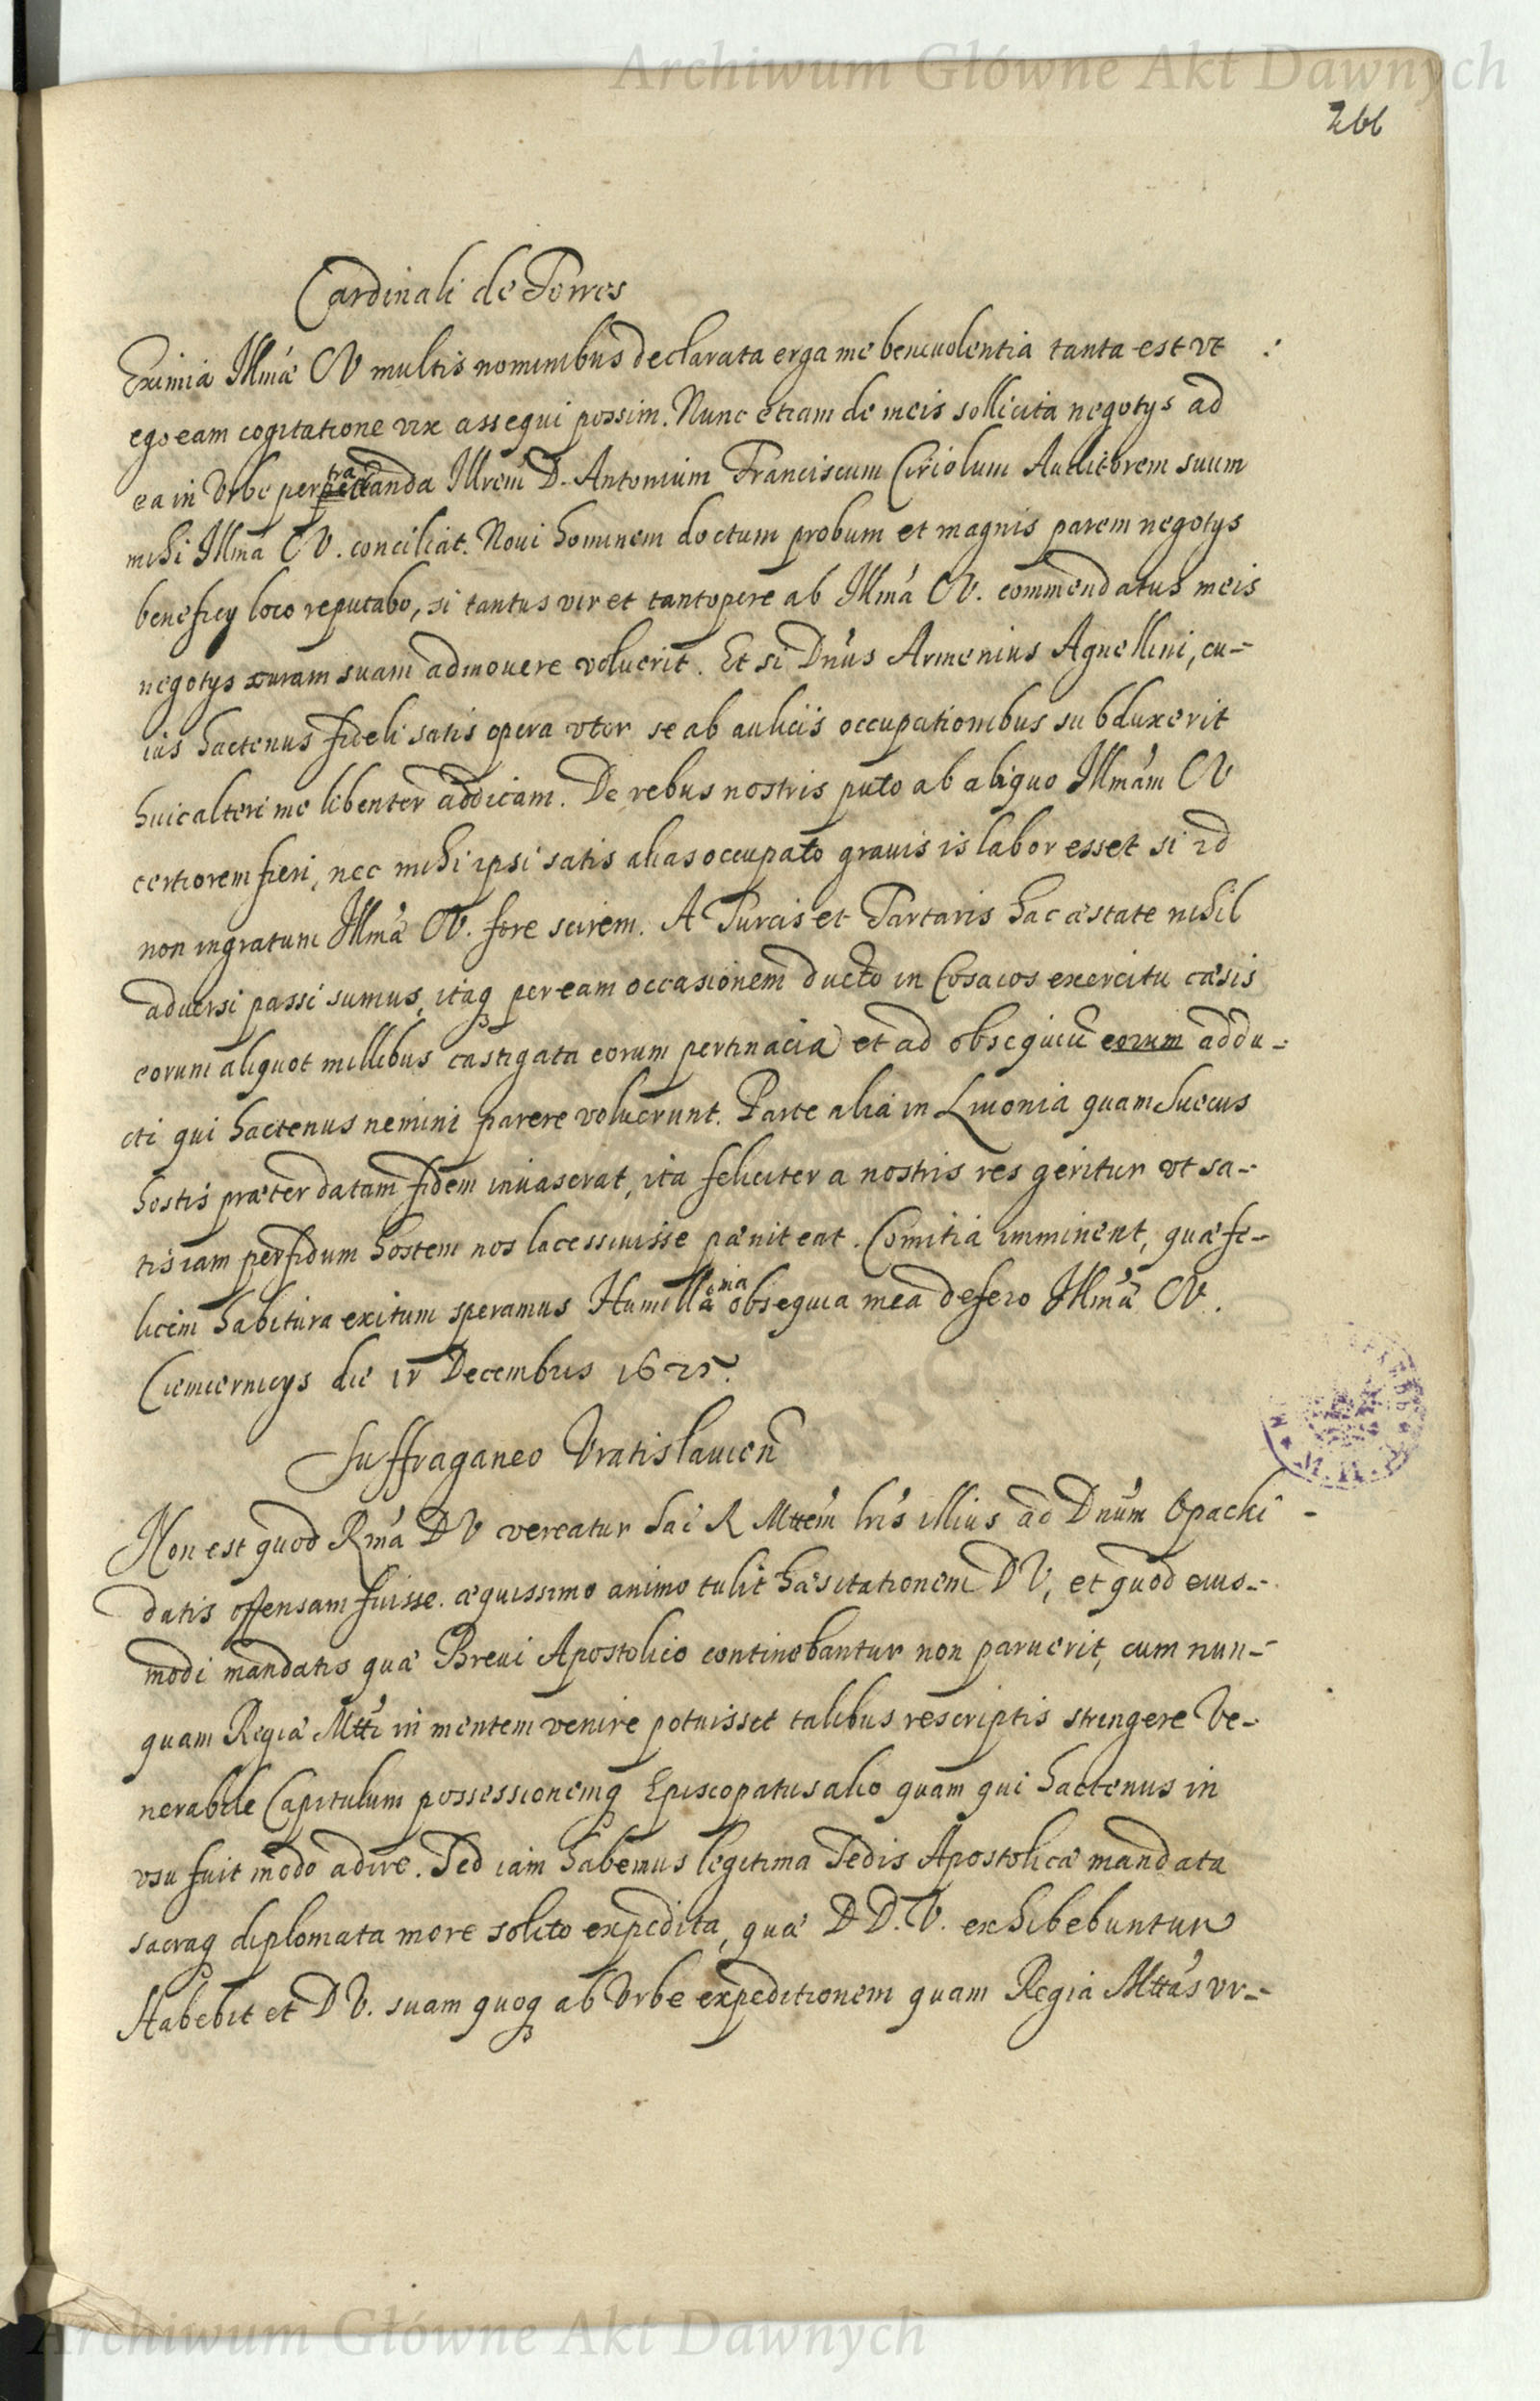 Archiwum Główne Akt Dawnych
266
Cardinali de Torres
Eximia Illmæ CV multis nominibus declarata erga me beneuolentia tanta est vt
ego eam cogitatione vix assequi possim. Nunc etiam de meis sollicita negotys ad
ea in Vrbe pertractanda Illrem D. Antonium Franciscum Ciriolum Auditorem suum
mihi Illma CV. conciliat. Noui hominem doctum probum et magnis parem negotys
beneficy loco reputabo, si tantus vir et tantopere ab Illma CV. commendatus meis
negotys curam suam admouere voluerit. Et si Dnus Armenius Agnellini, cu-
ius hactenus fideli satis opera vtor se ab aulicis occupationibus subduxerit
huic alteri me libenter addicam. De rebus nostris puto ab aliquo Illmam CV
certiorem fieri, nec mihi ipsi satis alias occupato grauis is labor esset si id
non ingratum Illmæ CV. fore scirem. A Turcis et Tartaris hac æstate nihil
aduersi passi sumus, itaq per eam occasionem ducto in Cosacos exercitu cæsis
eorum aliquot millibus castigata eorum pertinacia et ad obsequiu eorum addu-
cti qui hactenus nemini parere voluerunt. Parte alia in Liuonia quam Suecus
hostis præter datam fidem inuaserat, ita feliciter a nostris res geritur vt sa-
tis iam perfidum hostem nos lacessiuisse pæniteat. Comitia imminent, quæ fe-
licem habitura exitum speramus Humillma obsequia mea defero Illmæ CV.
Ciemiernicys die 15 Decembris 1625.
Suffraganeo Vratislauien
Non est quod Rma DV vereatur Sac R Mttem lris illius ad Dnum Opacki
datis offensam fuisse. æquissimo animo tulit hæsitationem DV, et quod eius-
modi mandatis quæ Breui Apostolico continebantur non paruerit, cum nun-
quam Regiæ Mtti in mentem venire potuisset talibus rescriptis stringere Ve-
nerabile Capitulum possessionemq Episcopatus alio quam qui hactenus in
vsu fuit modo adire. Sed iam habemus legitima Sedis Apostolicæ mandata
sacraq diplomata more solito expedita, quæ D D. V. exhibebuntur
Habebit et DV. suam quoq ab Vrbe expeditionem quam Regia Mttas vr-
Archiwum Główne Akt Dawnych